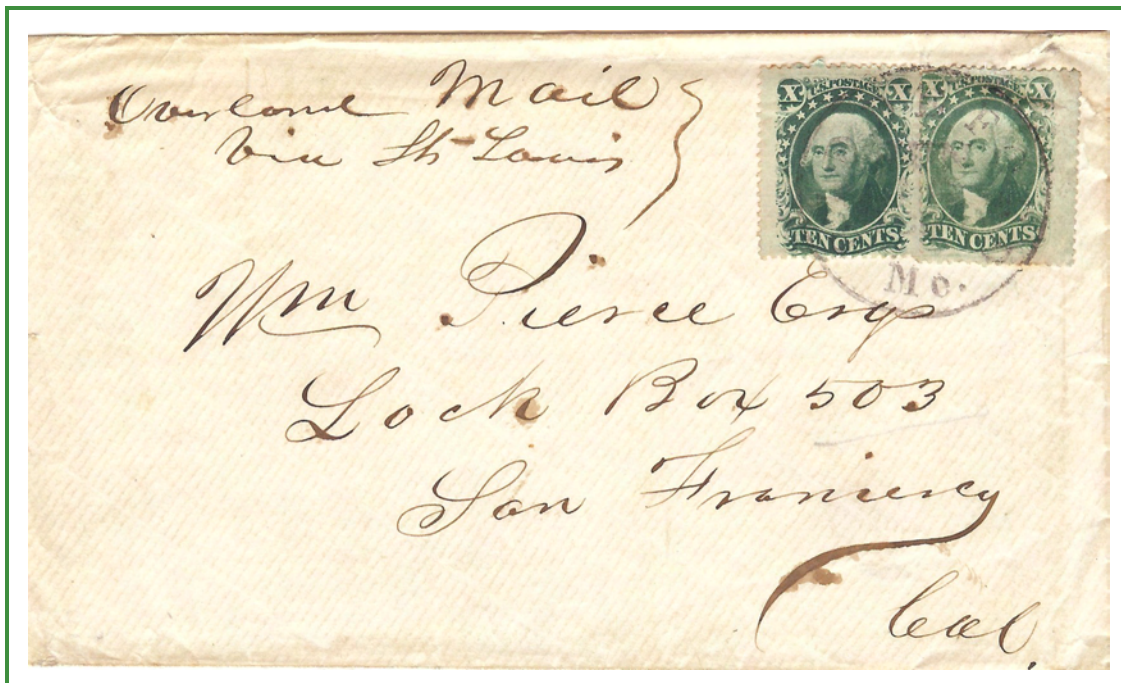 Overland Mail
Via St Louis
X U.S. POSTAGE X X U.S. POSTAGE X
TEN CENTS. TEN CENTS.
Mo.
Wm Pierce Esq
Lock Box 503
San Francisco
Cal.